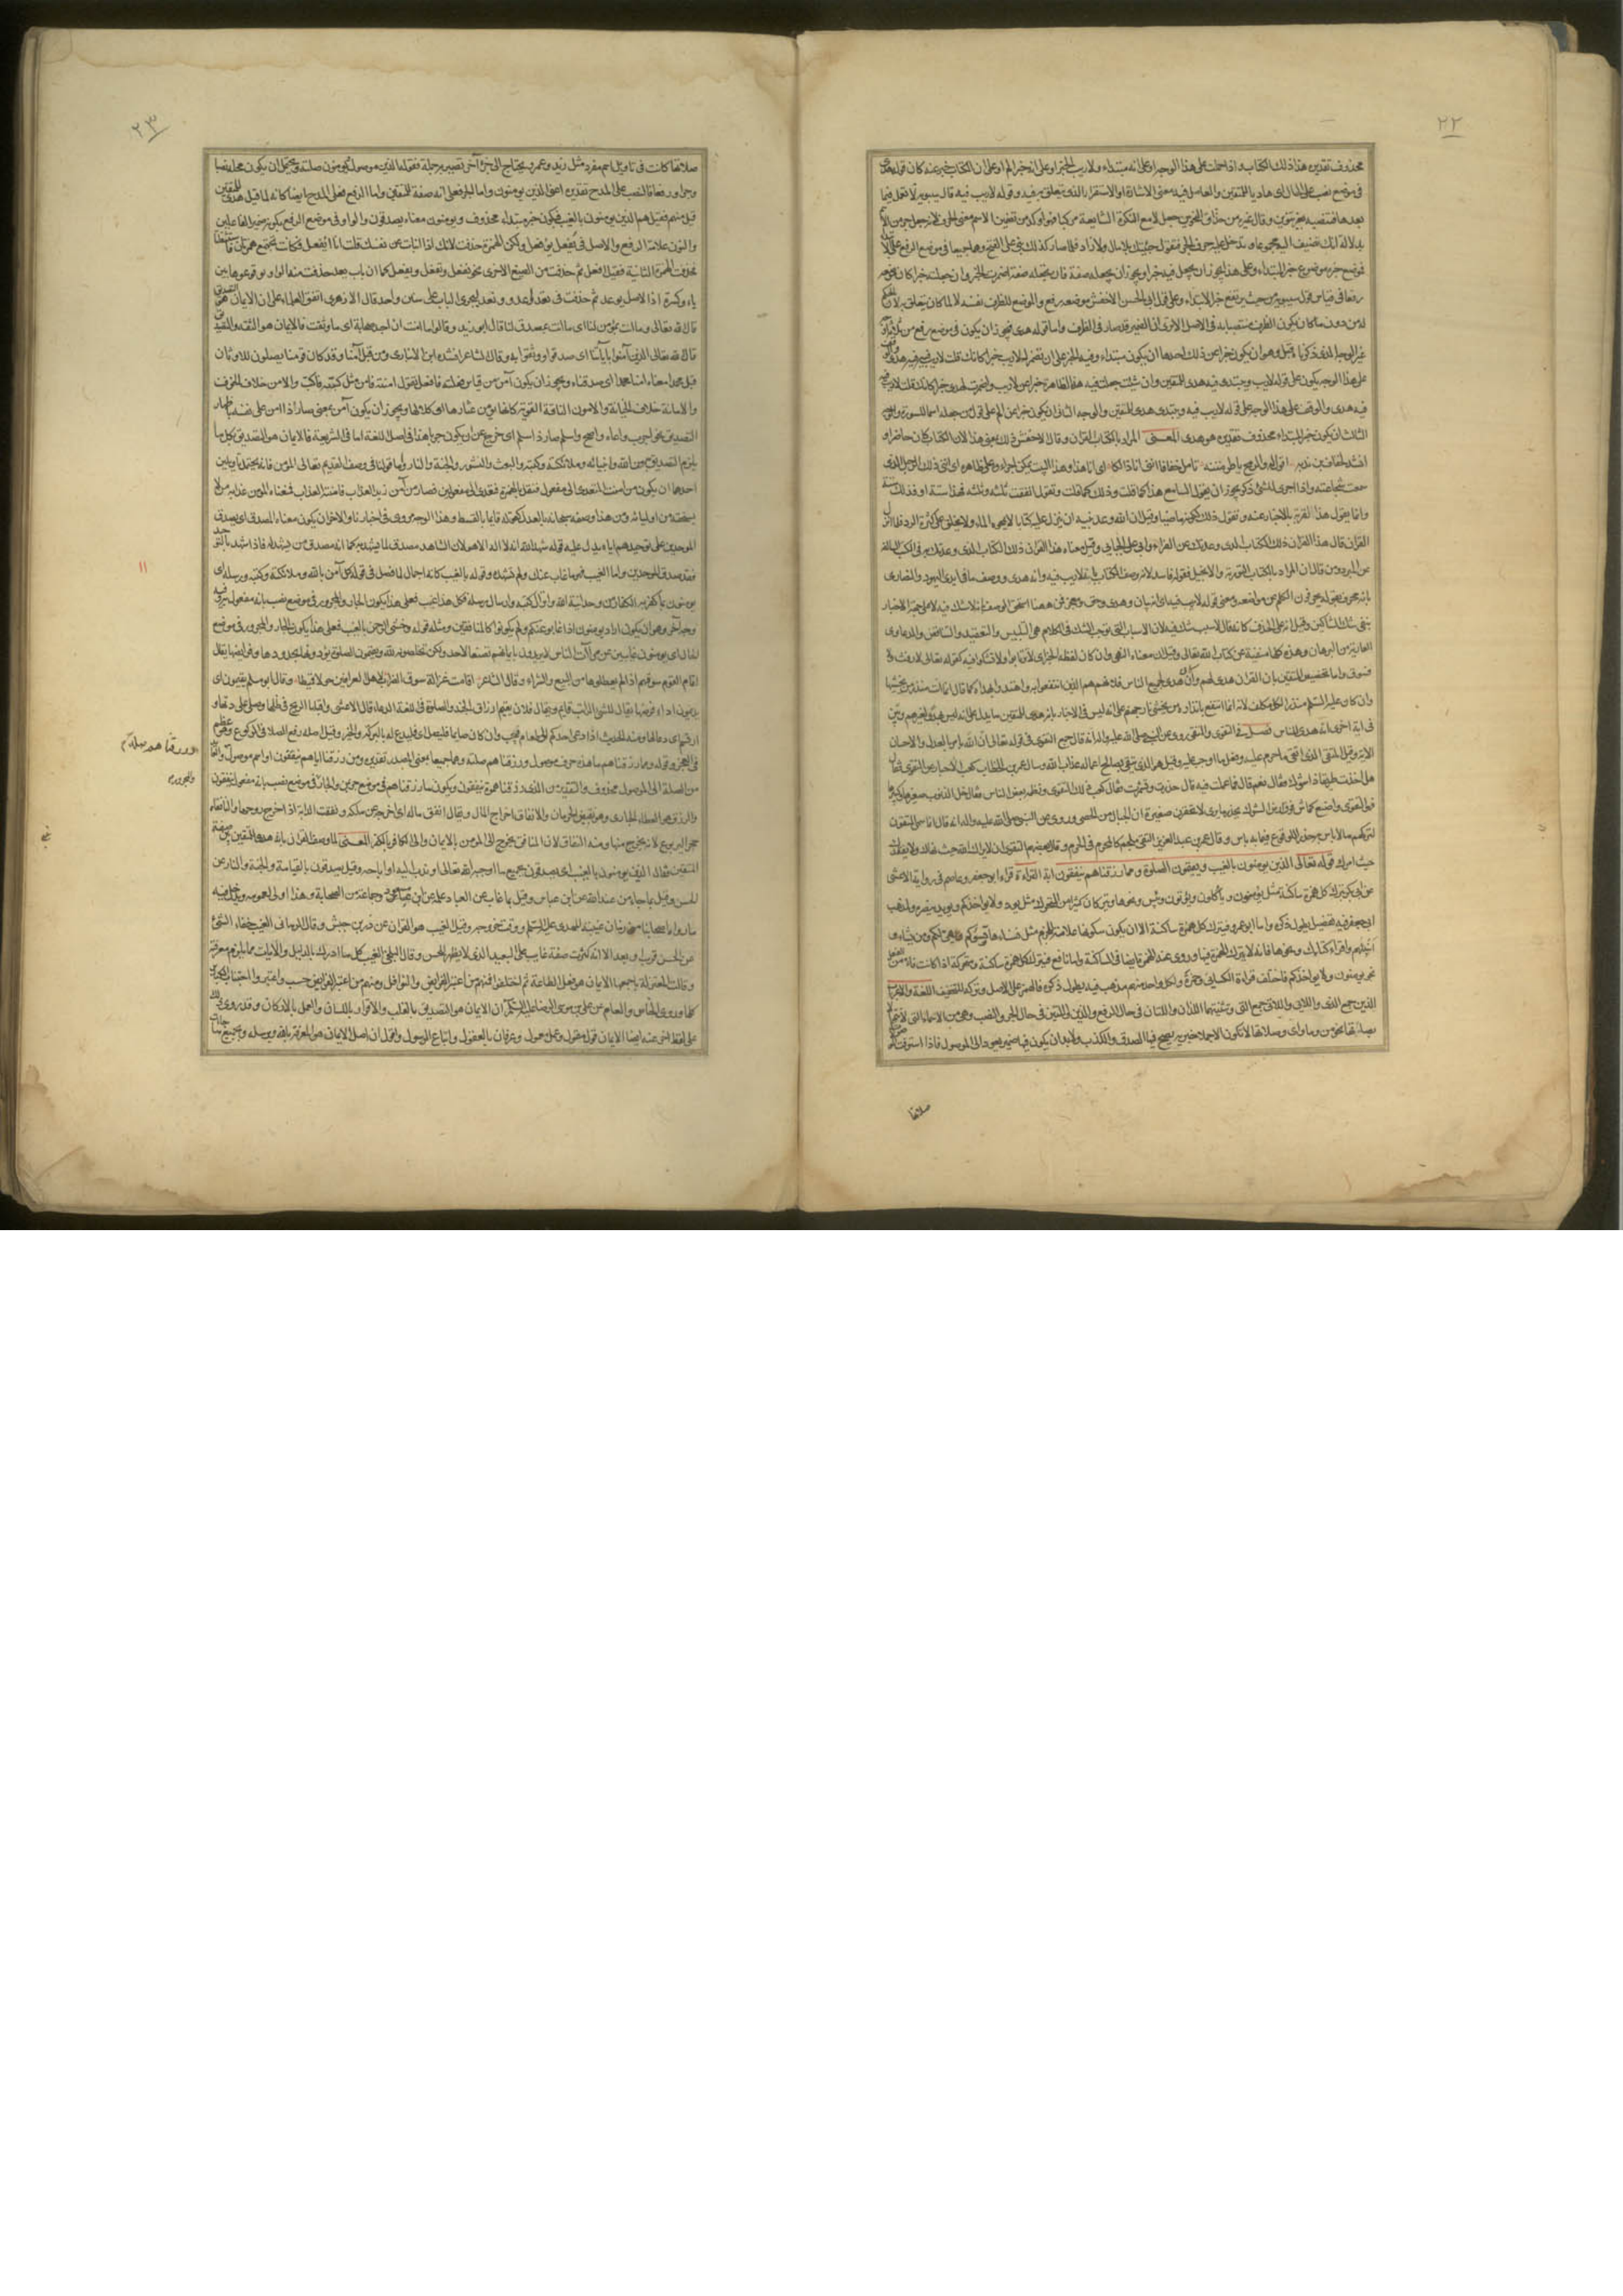 ٢٢
محذوف تقديره هذا ذلك الكتاب واذا حملت على هذا الوجه او على انه مبتداء ولا ريب الخبر او على انه خبر الم او على ان الكتاب خبر عنه كان قوله هدى
في موضع نصب على الحال اى هاديا للمتقين والعامل فيه معنى الاشارة او الاستقرار الذى يتعلق به فيه وقوله لا ريب فيه قال سيبويه لا تعمل فيما
بعدها فتنصبه بغير تنوين وقال غيره من حذاق النحويين جعل لا مع النكرة الشايعة مركبا فهو اوكد من تضمين الاسم معنى الحرف لانه جعل جزء من الاسم
فموضع خبره موضع خبر المبتداء وعلى هذا فيجوز ان يجعل فيه خبرا ويجوز ان يجعله صفة فان جعلته صفة اضمرت الخبر وان جعلته خبرا كان موضعه
رفعا في قياس قول سيبويه من حيث يرتفع خبر الابتداء وعلى قول ابى الحسن الاخفش موضعه رفع والموضع للظرف نفسه لا لما كان يتعلق به لان الحكم
له من دون ما كان يكون الظرف منتصبا به في الاصل الا ترى ان الضمير قد صار في الظرف واما قوله هدى فيجوز ان يكون في موضع رفع من ثلثة اوجه
غير الوجه الذى ذكرناه قبل وهو ان يكون خبرا عن ذلك احدها ان يكون مبتداء وفيه الخبر على ان تضمر للا ريب خبرا كانك قلت لا ريب فيه فيه هدى
على هذا الوجه يكون على قوله لا ريب ويبتدى فيه هدى للمتقين وان شئت جعلت فيه هذا الظاهرة خبرا عن لا ريب واضمرت لهدى خبرا كانك قلت لا ريب فيه
فيه هدى والوقف على هذا الوجه على قوله لا ريب فيه ويبتدى هدى للمتقين والوجه الثانى ان يكون خبرا عن الم على قول من جعله اسما للسورة والوجه
الثالث ان يكون خبر المبتداء محذوف تقديره هو هدى المعنى المراد بالكتاب القران وقال الاخفش ذلك بمعنى هذا لان الكتاب كان حاضرا و
انشد لخفاف بن ندبة اقول له والرمح ياطر متنه تامل خفافا اننى انا ذلكا اى انا هذا وهذا البيت يمكن اجراؤه على ظاهره اى اننى ذلك الرجل الذى
سمعت شجاعته واذا اجرى للشئ ذكر يجوز ان يقول السامع هذا كما قلت وذلك كما قلت وتقول انفقت ثلثة وثلثة فهذا ستة او فذلك ستة
وانما يقول هذا لقربه بالاخبار عنه وتقول ذلك لكونه ماضيا وقيل ان الله وعد نبيه ان ينزل عليه كتابا لا يمحوه الماء ولا يخلق على كثرة الرد فلما انزل
القران قال هذا القران ذلك الكتاب الذى وعدتك عن الفراء وابى على الجبائى وقيل معناه هذا القران ذلك الكتاب الذى وعدتك به في الكتب السالفة
عن المبرد ومن قال ان المراد بالكتاب التورية والانجيل فقوله فاسد لانه وصف الكتاب بانه لا ريب فيه وانه هدى ووصف ما في ايدى اليهود والنصارى
بانه محرف بقوله يحرفون الكلم عن مواضعه ومعنى قوله لا ريب فيه اى انه بيان وهدى وحق ومعجز فمن ههنا استحق الوصف بانه لا شك فيه لا على جهة الاخبار
بنفى شك الشاكين وقيل انه على الحذف كانه قال لا سبب شك فيه لان الاسباب التى توجب الشك في الكلام هى التلبيس والتعقيد والتناقض والدعاوى
العارية من البرهان وهذه كلها منفية عن كتاب الله تعالى وقيل ان معناه النهى وان كان لفظه الخبر اى لا ترتابوا ولا تشكوا فيه كقوله تعالى لا رفث ولا
فسوق واما تخصيص المتقين بان القران هدى لهم وان كان هدى لجميع الناس فلانهم هم الذين انتفعوا به واهتدوا بهداه كما قال انما انت منذر من يخشيها
وان كان عليه السلم منذر الكل مكلف لانه انما انتفع بانذاره من يخشى نار جهنم على انه ليس في الاخبار بانه هدى للمتقين ما يدل على انه ليس بهدى لغيرهم وبين
في اية اخرى انه هدى للناس فصل في التقوى والمتقى روى عن النبي صلى الله عليه واله انه قال جميع التقوى في قوله تعالى ان الله يامر بالعدل والاحسان
الاية وقيل المتقى الذى اتقى ما حرم عليه وفعل ما اوجب عليه وقيل هو الذى يتقى بصالح اعماله عذاب الله وسال عمر بن الخطاب كعب الاحبار عن التقوى فقال
هل اخذت طريقا ذا شوك فقال نعم قال فما عملت فيه قال حذرت وتشمرت فقال كعب ذلك التقوى ونظمه بعض الناس فقال خل الذنوب صغيرها وكبيرها
فهو التقوى واصنع كماش فوق ارض الشوك يحذر ما يرى لا تحقرن صغيرة ان الجبال من الحصى وروى عن النبي صلى الله عليه واله انه قال انما سمى المتقون
لتركهم ما لا باس به حذرا للوقوع فيما به باس وقال عمر بن عبد العزيز التقى ملجم كالمحرم في الحرم وقال بعضهم التقوى ان لا يراك الله حيث نهاك ولا يفقدك
حيث امرك قوله تعالى الذين يومنون بالغيب ويقيمون الصلوة ومما رزقناهم ينفقون اية القراءة قراء ابو جعفر وعاصم في رواية الاعشى
عن ابى بكر بترك كل همزة ساكنة مثل يؤمنون وياكلون ويؤتون وبئس ونحوها ويتركان كثيرا من المتحركة مثل يوده ولا يواخذكم ويويد بنصره ومذهب
ابى جعفر فيه تفصيل يطول ذكره واما ابو عمرو فيترك كل همزة ساكنة الا ان يكون سكونها علامة للجزم مثل ننساها وتسؤكم
غير يومنون ولا يواخذكم فاختلف قراءة الكسائى وحمزة ولكل واحد منهم مذهب فيه يطول ذكره فالهمز على الاصل وتركه للتخفيف اللغة والاعراب
الذين جمع الذى واللائى واللاتى جمع التى وتثنيتهما اللذان واللتان في حال الرفع والذين واللتين في حال الجر والنصب وهى من الاسماء التى لا تتم الا
بصلاتها نحو من وما واى وصلاتها لا تكون الا جملا خبرية يصح فيها الصدق والكذب ولا بد ان يكون فيها ضمير يعود الى الموصول فاذا استوفت
صلاتها
٢٣
صلاتها كانت في تاويل اسم مفرد مثل زيد وعمرو يحتاج الى جزء آخر تصير به جملة فقوله الذين موصول يومنون صلته ويحتمل ان يكون محله نصبا
وجرا ورفعا فالنصب على المدح تقديره اعنى الذين يومنون واما الجر فعلى انه صفة للمتقين واما الرفع فعلى المدح ايضا كانه لما قيل هدى للمتقين
قيل من هم فقيل هم الذين يومنون بالغيب فيكون خبر مبتداء محذوف ويومنون معناه يصدقون والواو في موضع الرفع بكونه ضمير الفاعلين
والنون علامة الرفع والاصل في يفعل يؤفعل ولكن الهمزة حذفت لانك اذا انبات عن نفسك قلت انا اافعل فكانت تجتمع همزتان فاستثقلتا
فحذفت الهمزة الثانية فقيل افعل ثم حذفت من الصيغ الاخرى نحو نفعل وتفعل ويفعل كما ان باب يعد حذفت منه الواو لوقوعها بين
ياء وكسرة اذ الاصل يوعد ثم حذفت في تعد واعد ونعد ليجرى الباب على سنن واحد قال الازهرى اتفق العلماء على ان الايمان هو التصديق
قال الله تعالى وما انت بمؤمن لنا اى ما انت بمصدق لنا قال ابو زيد وقالوا ما امنت ان اجد صحابة اى ما وثقت فالايمان هو الثقة والتصديق
قال الله تعالى الذين آمنوا باياتنا اى صدقوا ووثقوا بها وقال الشاعر انشده ابن الانبارى ومن قبل آمنا وقد كان قومنا يصلون للاوثان
قبل محمدا معناه امنا محمدا اى صدقناه ويجوز ان يكون آمن من قياس فعلته فافعل تقول امنته فامن مثل كببته فاكب والامن خلاف الخوف
والامانة خلاف الخيانة والامون الناقة القوية كانها يؤمن عثارها وكلالها ويجوز ان يكون آمن بمعنى صار ذا امن على نفسه باظهار
التصديق نحو اجرب واعاه واصح واسلم صار ذا سلم اى خرج عن ان يكون حربا هذا في اصل اللغة اما في الشريعة فالايمان هو التصديق بكل ما
يلزم التصديق به من الله وانبيائه وملائكته وكتبه والبعث والنشور والجنة والنار واما قولنا في وصف القديم تعالى المؤمن فانه يحتمل تاويلين
احدهما ان يكون من امنت المتعدى الى مفعول فنقل بالهمزة فتعدى الى مفعولين فصار من آمن زيد العذاب وآمنته العذاب فمعناه المؤمن عذابه من لا
يستحقه من اوليائه ومن هذا وصفه سبحانه بالعدل كقوله قايما بالقسط وهذا الوجه مروى في اخبارنا والاخر ان يكون معناه المصدق اى يصدق
الموحدين على توحيدهم اياه يدل عليه قوله شهد الله انه لا اله الا هو لان الشاهد مصدق لما يشهد به كما انه مصدق من يشهد له فاذا شهد بالتوحيد
فقد صدق الموحدين واما الغيب فهو ما غاب عنك ولم تشهده وقوله بالغيب كانه اجمال لما فصل في قوله كل آمن بالله وملائكته وكتبه ورسله اى
يومنون بما كفر به الكفار من وحدانية الله وانزال كتبه وارسال رسله فكل هذا غيب فعلى هذا يكون الجار والمجرور في موضع نصب بانه مفعول به وفيه
وجه آخر وهو ان يكون اراد يومنون اذا غابوا عنكم ولم يكونوا كالمنافقين ومثله قوله وخشى الرحمن بالغيب فعلى هذا يكون الجار والمجرور في موضع
الحال اى يومنون غايبين عن مرآة الناس لا يريدون بايمانهم تصنعا لاحد ولكن تخلصونه لله ويقيمون الصلوة يؤدونها بحدودها وفرايضها يقال
اقام القوم سوقهم اذا لم يعطلوها من البيع والشراء وقال الشاعر اقامت غزالة سوق الضراب لاهل العراقين حولا قميطا وقال ابو مسلم يقيمون اى
يديمون اداء فرضها يقال للشئ الراتب قايم ويقال فلان يقيم ارزاق الجند والصلوة في اللغة الدعاء قال الاعشى واقبلها الريح في ظلها وصلى على دنها و
ارتسم اى دعا لها ومنه الحديث اذا دعى احدكم الى طعام فليجب وان كان صايما فليصل اى فليدع له بالبركة والخير وقيل اصله رفع الصلا في الركوع وهو عظم
في العجز وقوله ومما رزقناهم ما هذه حرف موصول ورزقناهم صلته وهما جميعا بمعنى المصدر تقديره ومن رزقنا اياهم ينفقون او اسم موصول والعائد
من الصلة الى الموصول محذوف والتقدير ومن الذى رزقناهموه ينفقون ويكون ما رزقناهم في موضع جر بمن والجار في موضع نصب بانه مفعول ينفقون
والرزق هو العطاء الجارى وهو نقيض الحرمان والانفاق اخراج المال ويقال انفق ماله اى اخرجه عن ملكه ونفقت الدابة اذا خرج روحها والنافقاء
جحر اليربوع لانه يخرج منها ومنه النفاق لان المنافق يخرج الى المؤمن بالايمان والى الكافر بالكفر المعنى لما وصف القران بانه هدى للمتقين بين صفة
المتقين فقال الذين يومنون بالغيب اى يصدقون بجميع ما اوجبه الله تعالى او ندب اليه او اباحه وقيل يصدقون بالقيامة والجنة والنار عن
الحسن وقيل بما جاء من عند الله عن ابن عباس وقيل بما غاب عن العباد علمه عن ابن مسعود وجماعة من الصحابة وهذا اولى لعمومه ويدخل فيه
ما رواه اصحابنا من زمان غيبة المهدى عليه السلم ووقت خروجه وقيل الغيب هو القران عن زر بن حبيش وقال الرمانى الغيب خفاء الشئ
عن الحس قرب او بعد الا انه كثرت صفة غايب على البعيد الذى لا يظهر للحس وقال البلخى الغيب كل ما ادرك بالدليل والايات مما يلزم معرفته
وقالت المعتزلة باجمعها الايمان هو فعل الطاعة ثم اختلفوا فمنهم من اعتبر الفرايض والنوافل ومنهم من اعتبر الفرايض حسب واعتبروا اجتناب الكباير
كلها وروى الخاص والعام عن على بن موسى الرضا عليه السلم ان الايمان هو التصديق بالقلب والاقرار باللسان والعمل بالاركان وقد روى ذلك
على لفظ آخر عنه ايضا الايمان قول مقول وعمل معمول وعرفان بالعقول واتباع الرسول واقول ان اصل الايمان هو المعرفة بالله وبرسله وبجميع ما جاءت